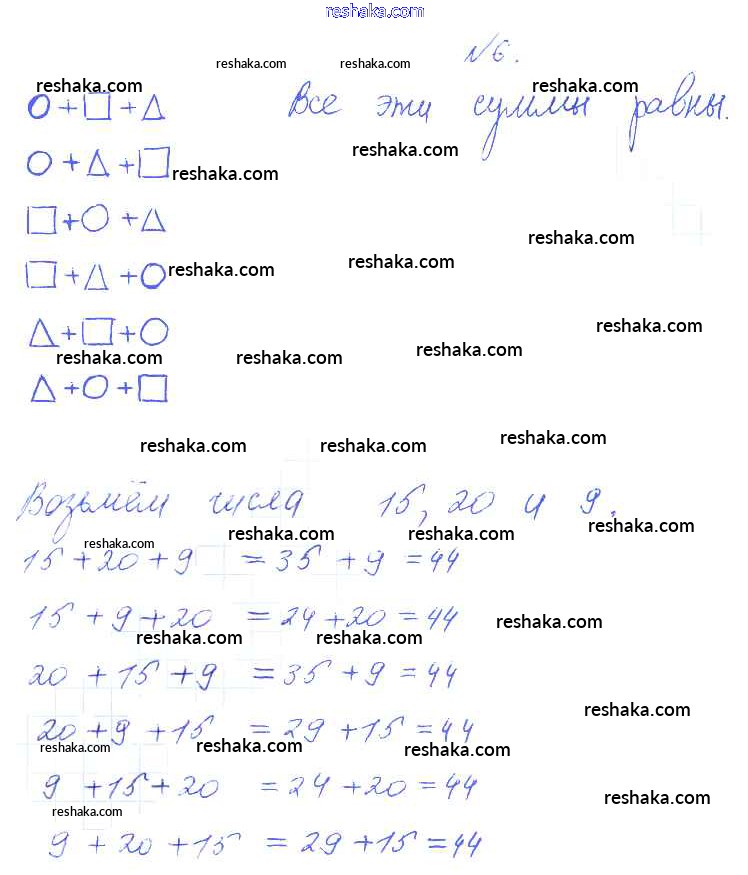 reshaka.com
№6.
reshaka.com reshaka.com
reshaka.com reshaka.com
○+□+△ Все эти суммы равны.
reshaka.com
○+△+□ reshaka.com
□+○+△
reshaka.com
□+△+○ reshaka.com reshaka.com
reshaka.com
△+□+○
reshaka.com reshaka.com reshaka.com
△+○+□
reshaka.com reshaka.com reshaka.com
Возьмём числа 15, 20 и 9.
reshaka.com reshaka.com reshaka.com reshaka.com
15+20+9 =35+9=44
15+9+20 =24+20=44
reshaka.com reshaka.com reshaka.com
20+15+9 =35+9=44
reshaka.com
20+9+15 =29+15=44
reshaka.com reshaka.com reshaka.com
9+15+20 =24+20=44
reshaka.com reshaka.com
9+20+15 =29+15=44